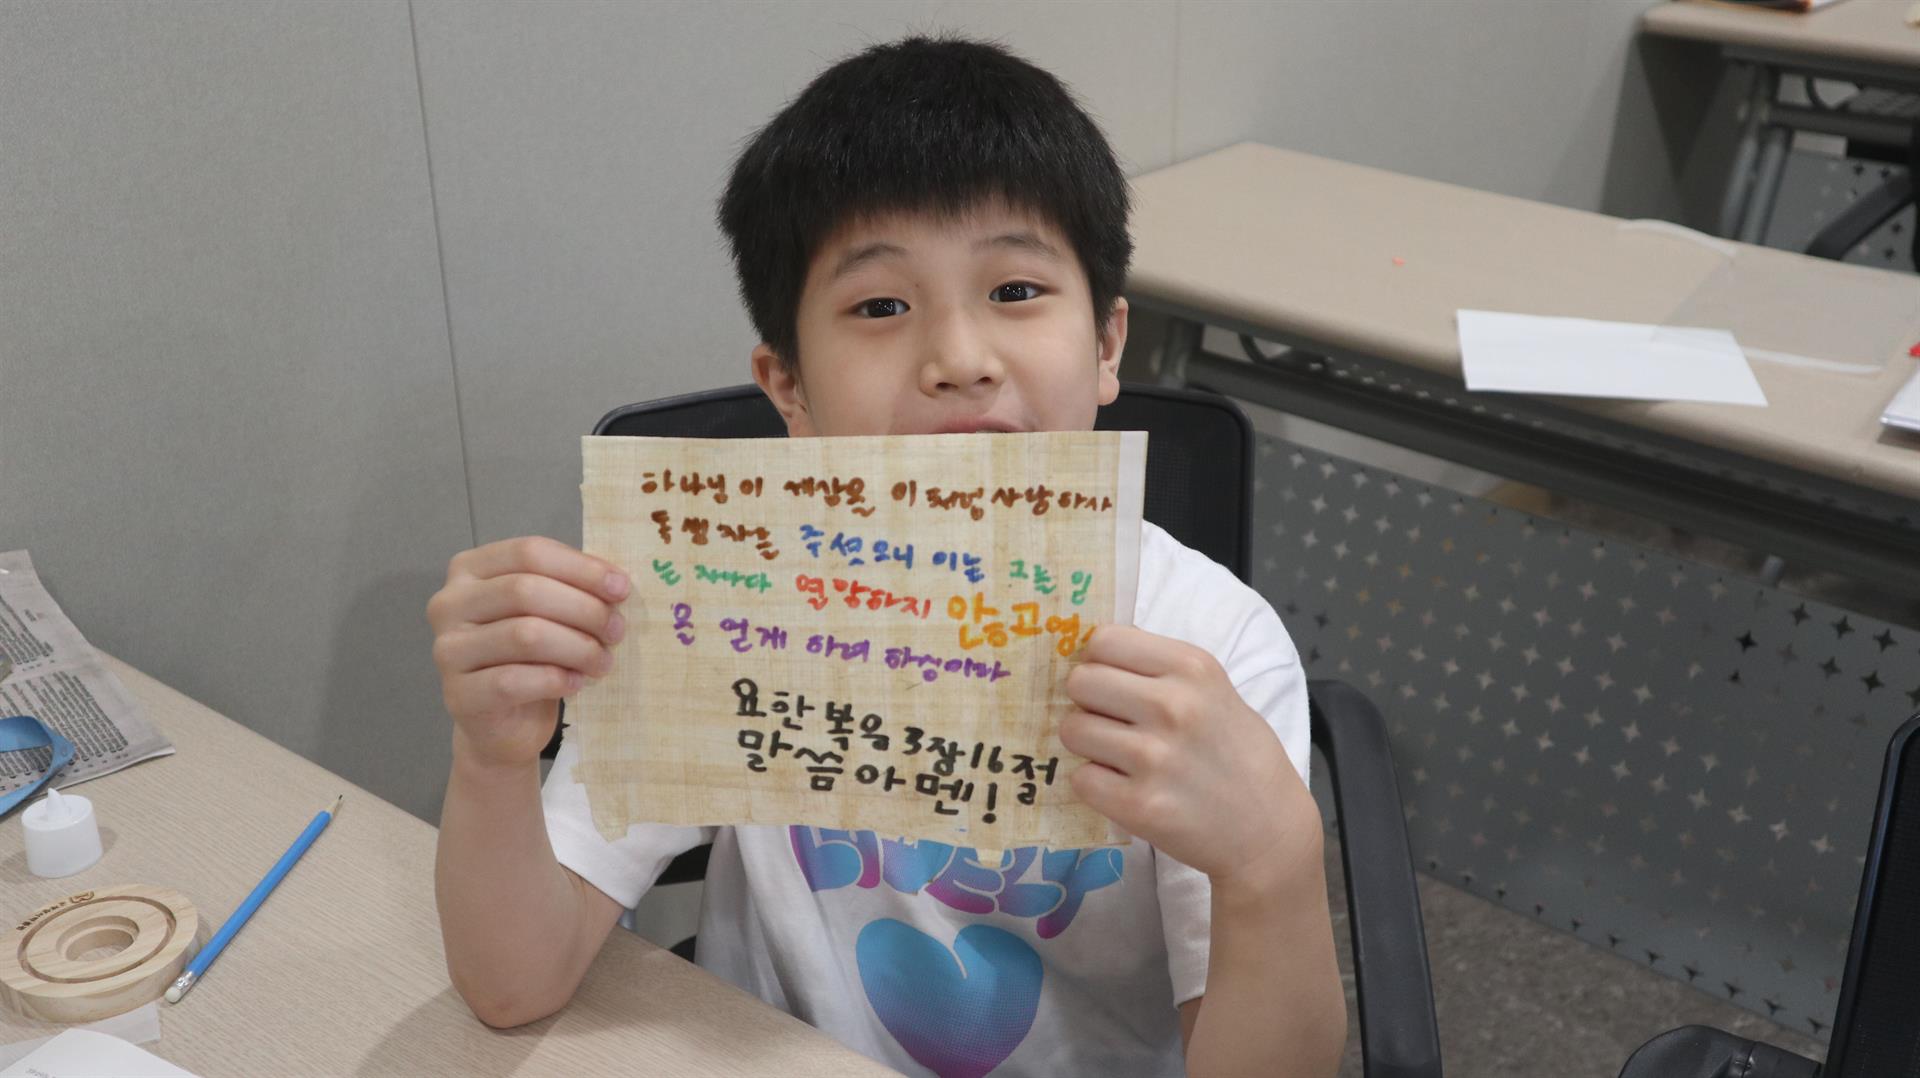 하나님이 세상을 이처럼 사랑하사
독생자를 주셧으니 이는 그를 믿
는 자마다 멸망하지 안응고 영생
을 얻게 하려 하심이라
요한복음 3장 16절
말씀 아멘!
LIVELY